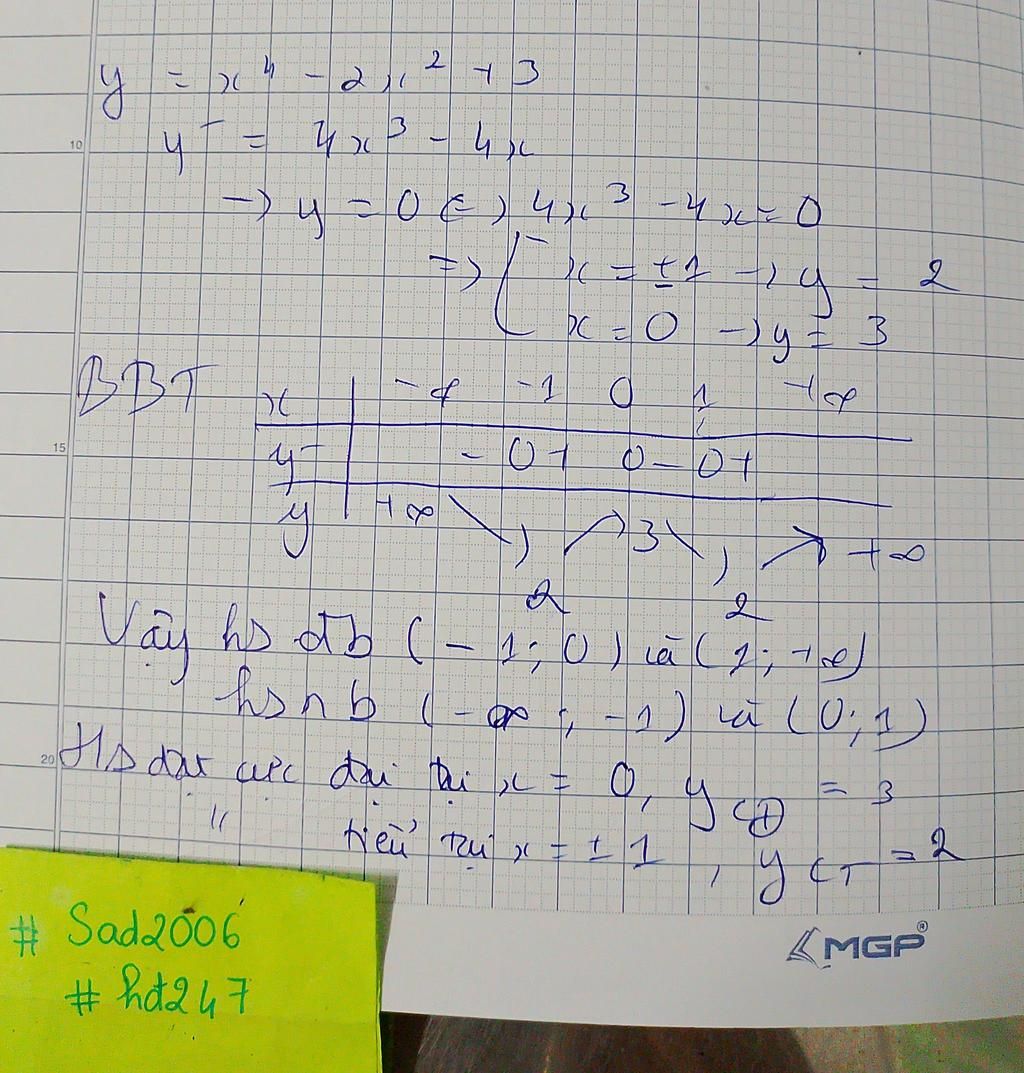 y = x⁴ - 2x² + 3
y' = 4x³ - 4x
→ y = 0 <=> 4x³ - 4x = 0
=> [ x = ±1 → y = 2
x = 0 → y = 3
BBT
x -∞ -1 0 1 +∞
y' - 0 + 0 - 0 +
y +∞ ↘ 2 ↗ 3 ↘ 2 ↗ +∞
Vậy hs đb (-1; 0) và (1; +∞)
hs nb (-∞; -1) và (0; 1)
HS đạt cực đại tại x = 0, y CĐ = 3
" tiểu tại x = ±1, y CT = 2
MGP®
# Sad2006
# hđ247
10
15
20